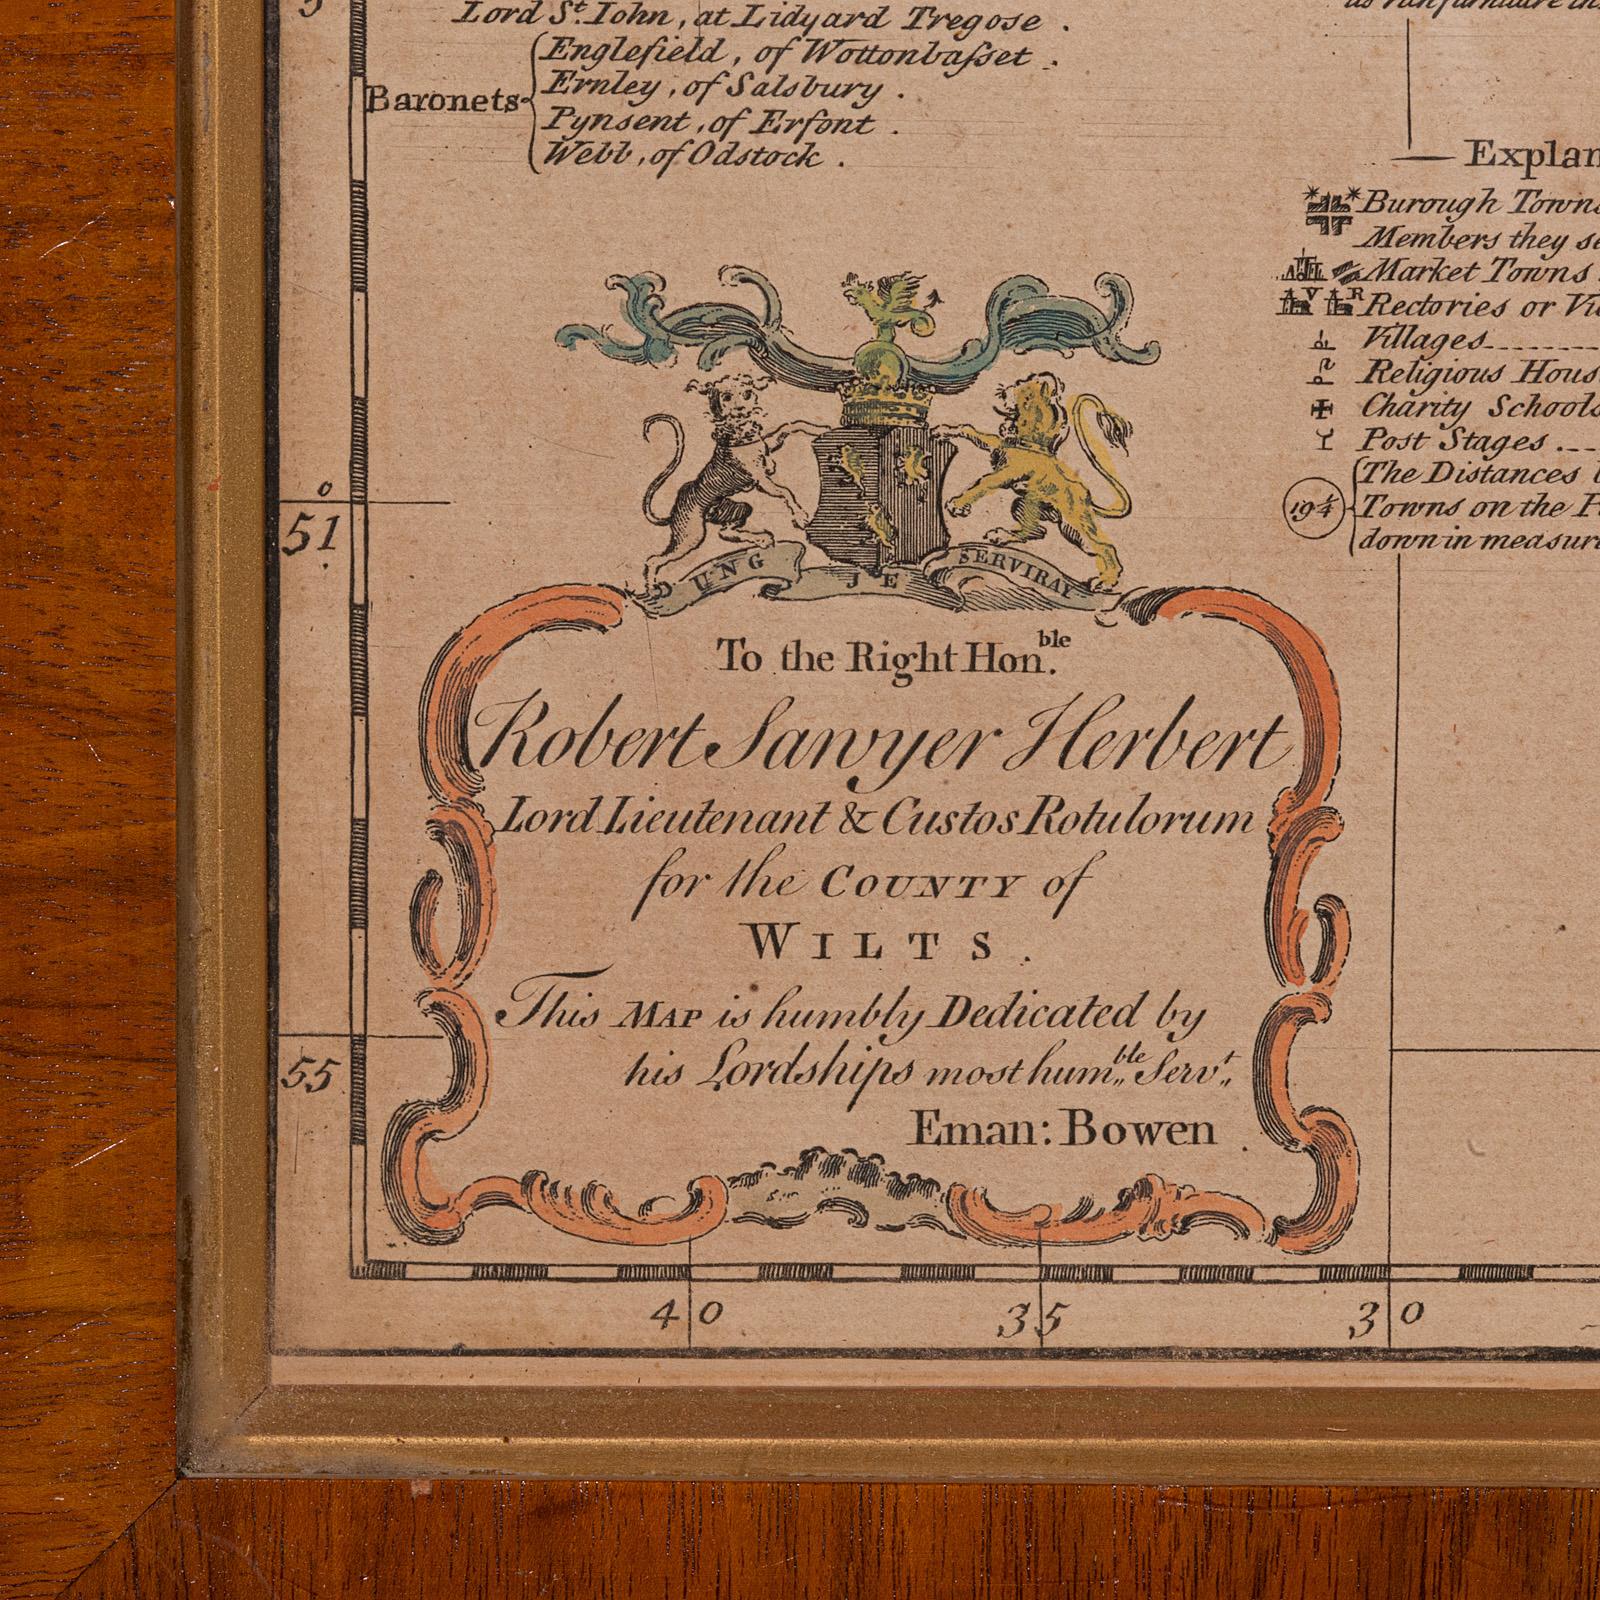 Lord St. Iohn, at Lidyard Tregose.
Englefield, of Wottonbaſset.
Baronets
Ernley, of Salsbury.
Pynsent, of Erfont.
Webb, of Odstock.
Explan
Burough Towns
Members they se
Market Towns
Rectories or Vi
Villages
Religious Hous
Charity Schools
Post Stages
The Distances b
19¼ Towns on the
down in measur
UNG JE SERVIRAY
0
51
To the Right Honble.
Robert Sawyer Herbert
Lord Lieutenant & Custos Rotulorum
for the COUNTY of
WILTS.
This MAP is humbly Dedicated by
his Lordships most humble Servt
Eman: Bowen.
55
40 35 30